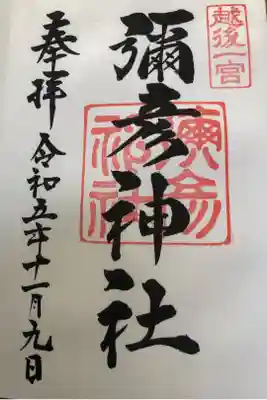 越後一宮
彌彦神社
彌彦
神社
奉拝
令和五年十一月九日